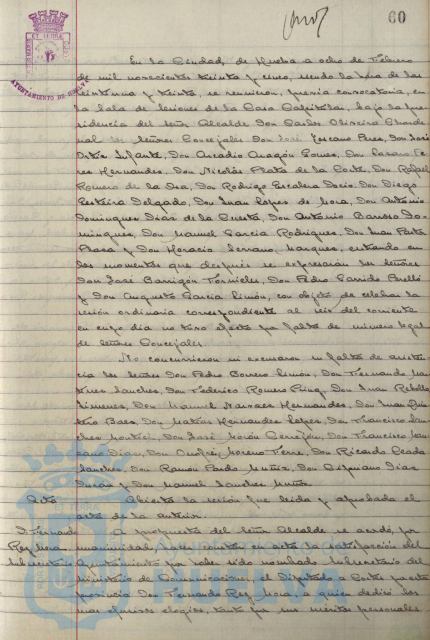 60
AYUNTAMIENTO DE HUELVA
En la Ciudad de Huelva a ocho de Febrero
de mil novecientos treinta y cinco, siendo la hora de las
veintiuna y treinta, se reunieron, previa convocatoria, en
la Sala de Sesiones de la Casa Capitular, bajo la pre-
sidencia del Señor Alcalde Don Carlos Oliveira
los Señores Concejales Don José Lescano Pires, Don José
Ortiz Infante, Don Arcadio Aragón Gómez, Don Lázaro Pé-
rez Hernández, Don Nicolás Plata de la Corte, Don Rafael
Romero de la Osa, Don Rodrigo Escalera Decio, Don Diego
Pereira Delgado, Don Juan López de Mora, Don Antonio
Domínguez Díaz de la Cuesta, Don Antonio Barroso Do-
mínguez, Don Manuel García Rodríguez, Don Juan
y Don Horacio Serrano Márquez, entrando en
los momentos que después se expresarán los señores
Don José Barrigón Tornielles, Don Pedro Garrido Perelló
y Don Augusto García Limón, con objeto de celebrar la
sesión ordinaria correspondiente al seis del corriente
en cuyo día no tuvo efecto por falta de número legal
de señores Concejales.
No concurrieron ni excusaron su falta de asisten-
cia los señores Don Pedro Borrero Limón, Don Fernando Mar-
tínez Sánchez, Don Federico Romero Ruiz, Don Juan Rebollo
Jiménez, Don Manuel Narváez Hernández, Don Juan Quin-
tero Báez, Don Matías Hernández López, Don Francisco Sán-
chez Montiel, Don José Morón Cerrejón, Don Francisco
Díaz, Don Andrés Moreno Terre, Don Ricardo Terrades
Sánchez, Don Ramón Pardo Muñiz, Don Cipriano Díaz
Durán y Don Manuel Sánchez Muñiz
Acta Abierta la sesión fue leída y aprobada el
acta de la anterior.
D. Fernando A propuesta del Señor Alcalde se acordó, por
Rey Mora, unanimidad, que conste en acta la satisfacción del
Subsecretario Ayuntamiento por haber sido nombrado Subsecretario del
Ministerio de Comunicaciones, el Diputado a Cortes por esta
provincia Don Fernando Rey Mora, a quien dedicó los
más efusivos elogios, tanto por sus méritos personales